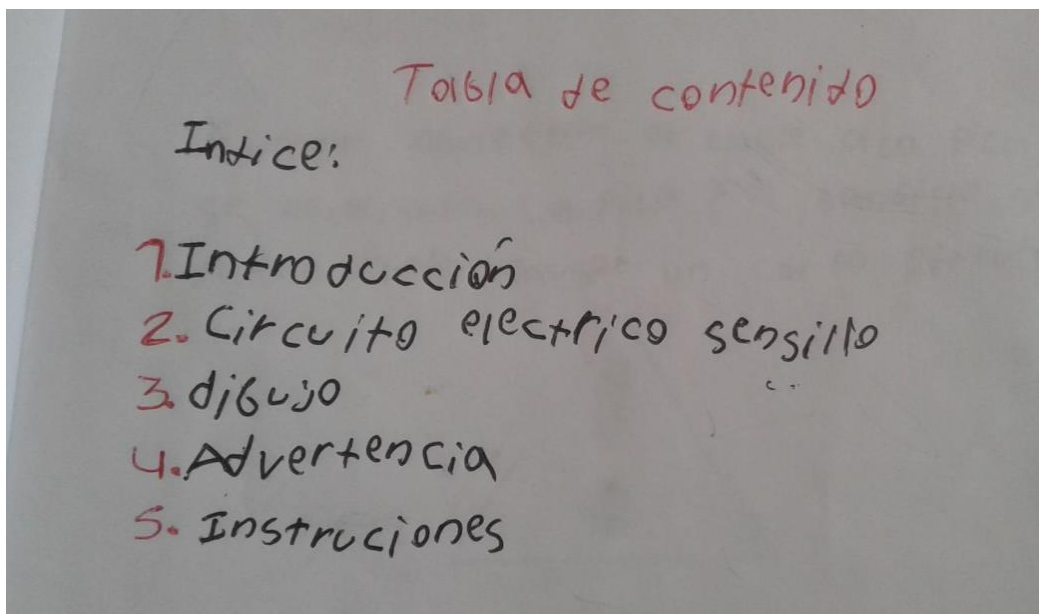 Tabla de contenido
Indice:
1. Introducción
2. Circuito electrico sensillo
3. dibujo
4. Advertencia
5. Instruciones